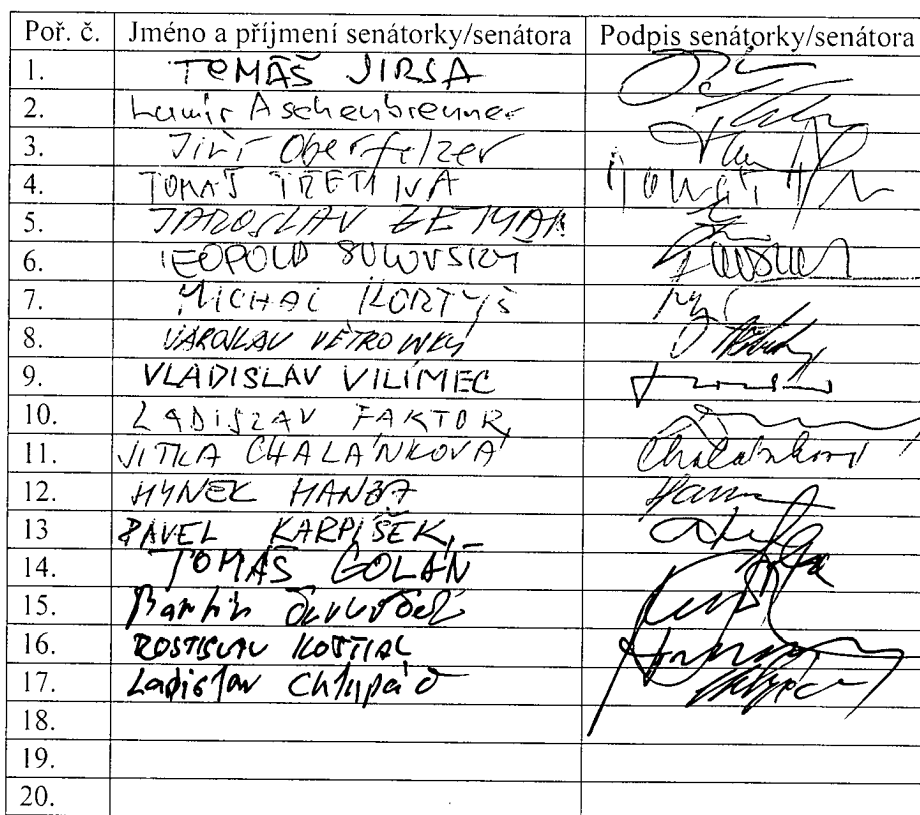 Poř. č. Jméno a příjmení senátorky/senátora Podpis senátorky/senátora
1. TOMÁŠ JIRSA
2. Lumír Aschenbrenner
3. Jiří Oberfalzer
4. TOMÁŠ TŘETINA
5. JAROSLAV ZEMAN
6. LEOPOLD SULOVSKÝ
7. MICHAL KORTYŠ
8. JAROSLAV VĚTROVSKÝ
9. VLADISLAV VILÍMEC
10. LADISLAV FAKTOR
11. JITKA CHALÁNKOVÁ Chalánková
12. HYNEK HANZA
13 PAVEL KARPÍŠEK,
14. TOMÁŠ GOLÁŇ
15. Martin Červíček
16. ROSTISLAV KOŠTIAL
17. Ladislav Chlupáč
18.
19.
20.